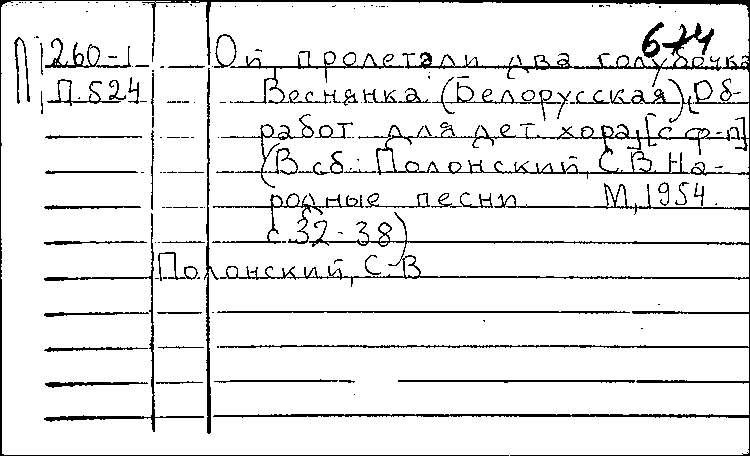 674
260-1 Ой, пролетали два голубочка
П 524 Веснянка. (Белорусская), [Об-
работ. для дет. хора, [с ф-п]
(В сб.: Полонский, С.В. На-
родные песни М, 1954.
с. 32-38)
Полонский, С.В